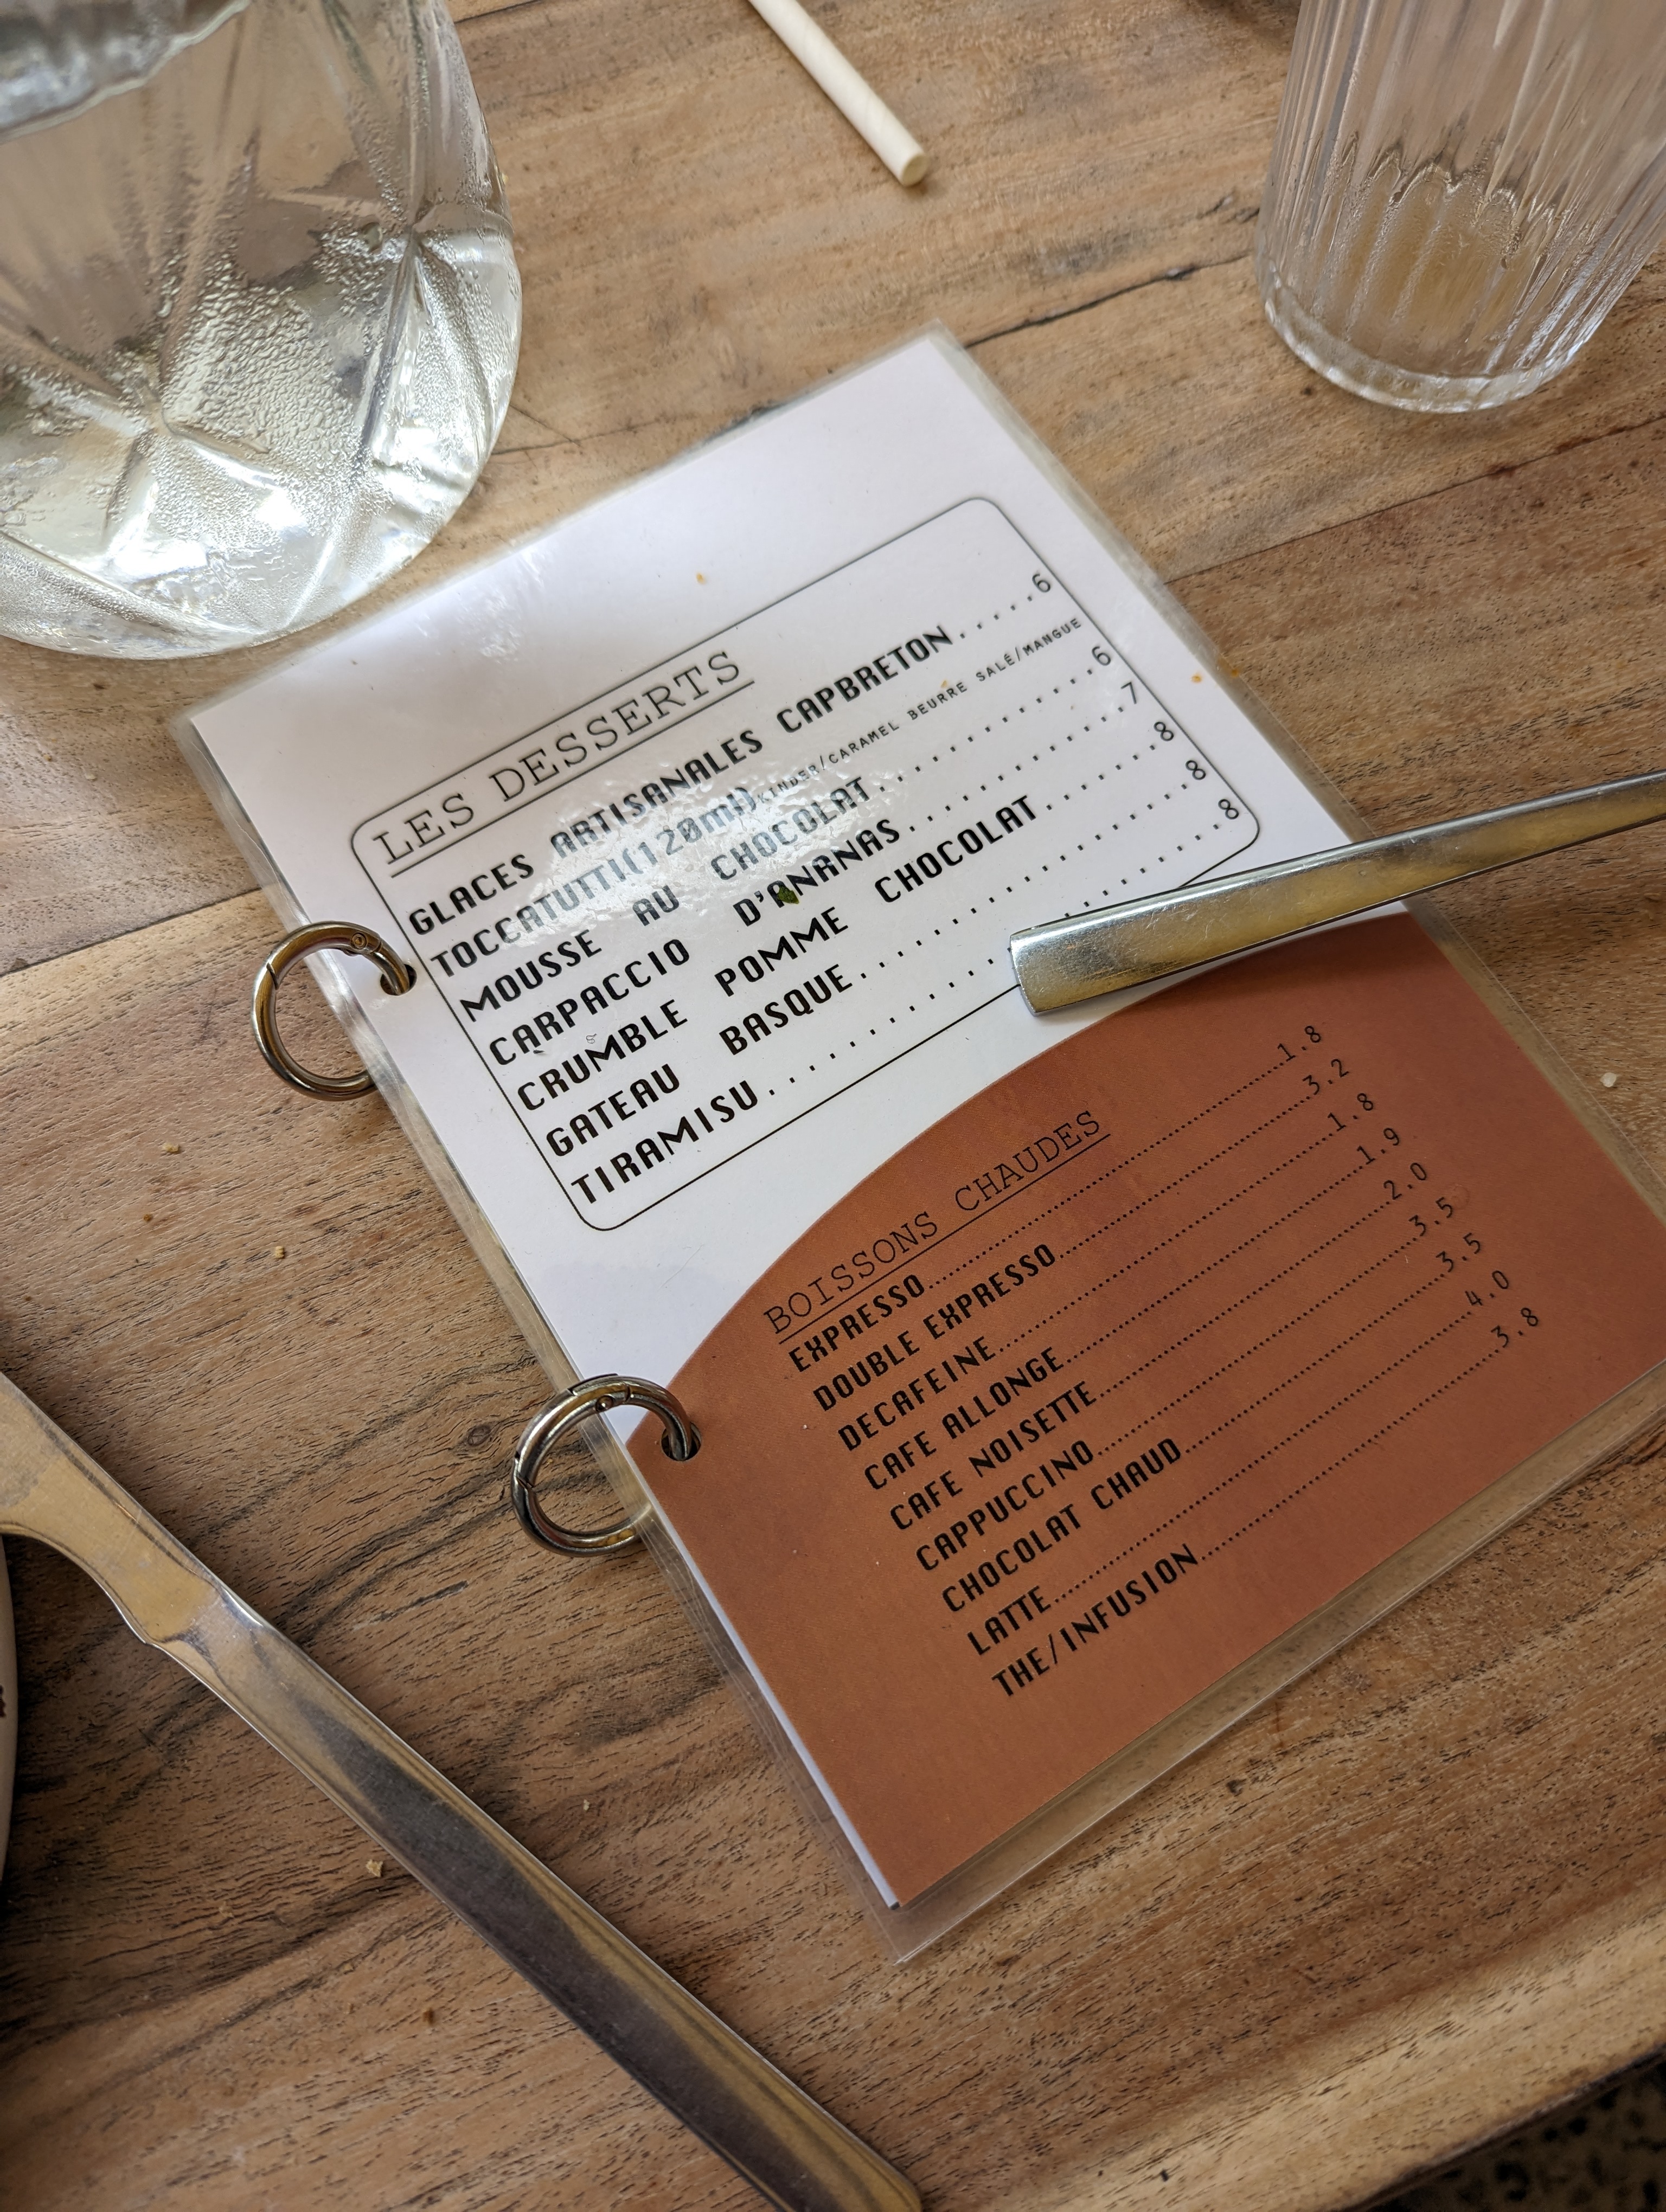 LES DESSERTS
GLACES ARTISANALES CAPBRETON.....6
TOCCATUTTI(120ml)KINDER/CARAMEL BEURRE SALÉ/MANGUE
MOUSSE AU CHOCOLAT............6
CARPACCIO D'ANANAS............7
CRUMBLE POMME CHOCOLAT......8
GATEAU BASQUE..................8
TIRAMISU........................8
BOISSONS CHAUDES
EXPRESSO..............................1.8
DOUBLE EXPRESSO......................3.2
DECAFEINE............................1.8
CAFE ALLONGE.........................1.9
CAFE NOISETTE........................2.0
CAPPUCCINO...........................3.5
CHOCOLAT CHAUD.......................3.5
LATTE................................4.0
THE/INFUSION.........................3.8